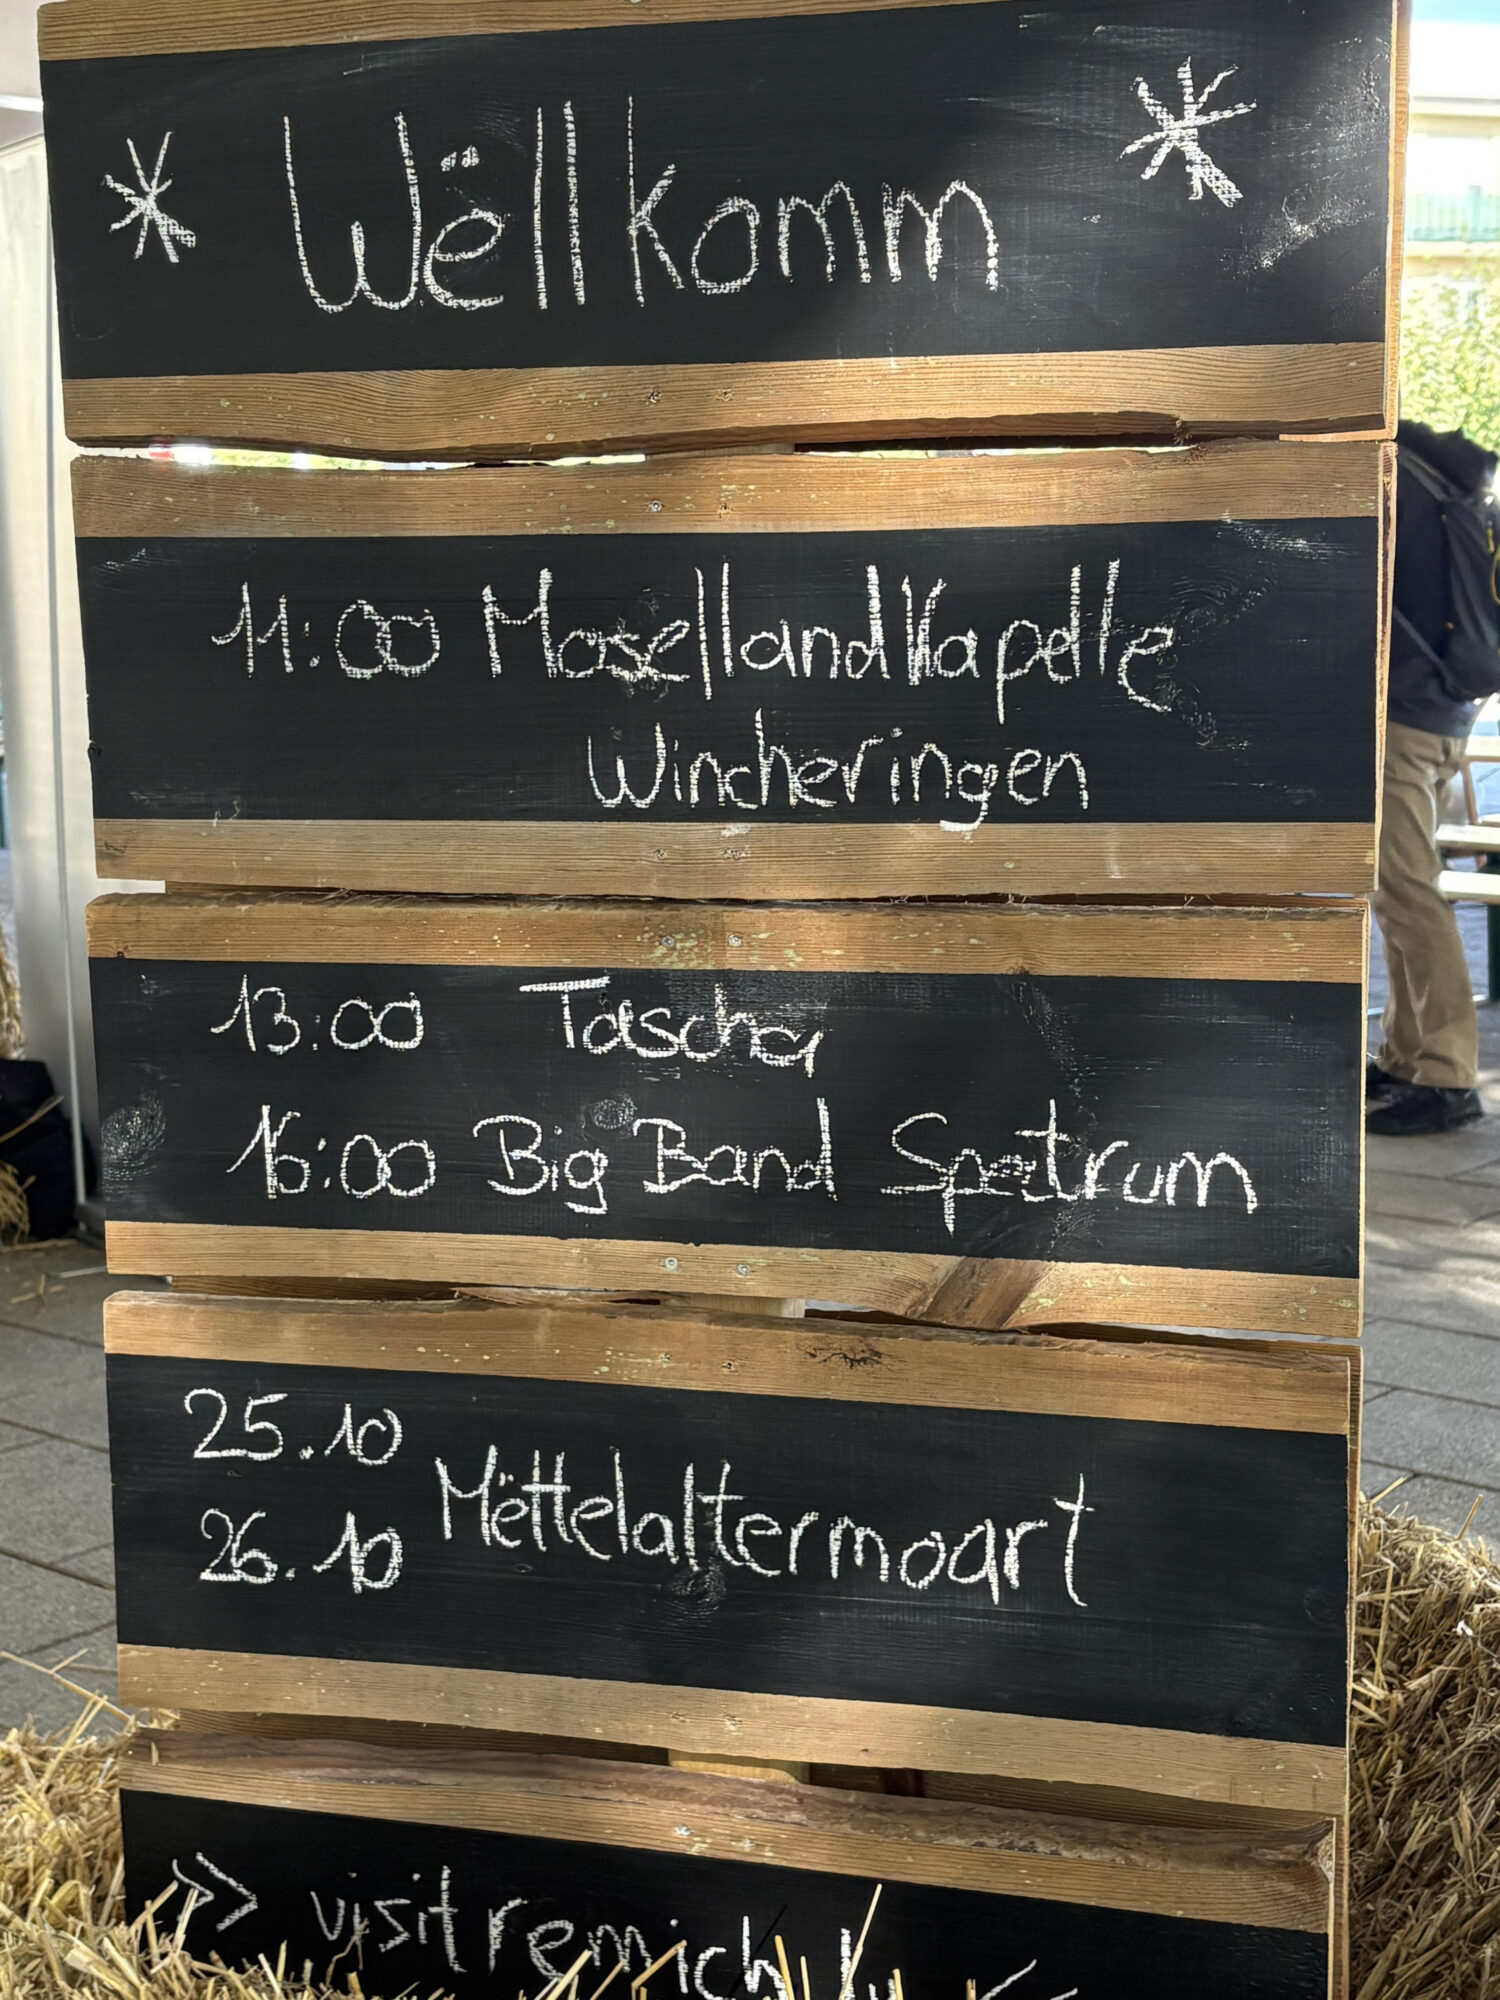 Wëllkomm
11:00 Mosellandkapelle
Wincheringen
13:00 Tascha
16:00 Big Band Spectrum
25.10
26.10 Mëttelaltermoart
>> visitremich.lu